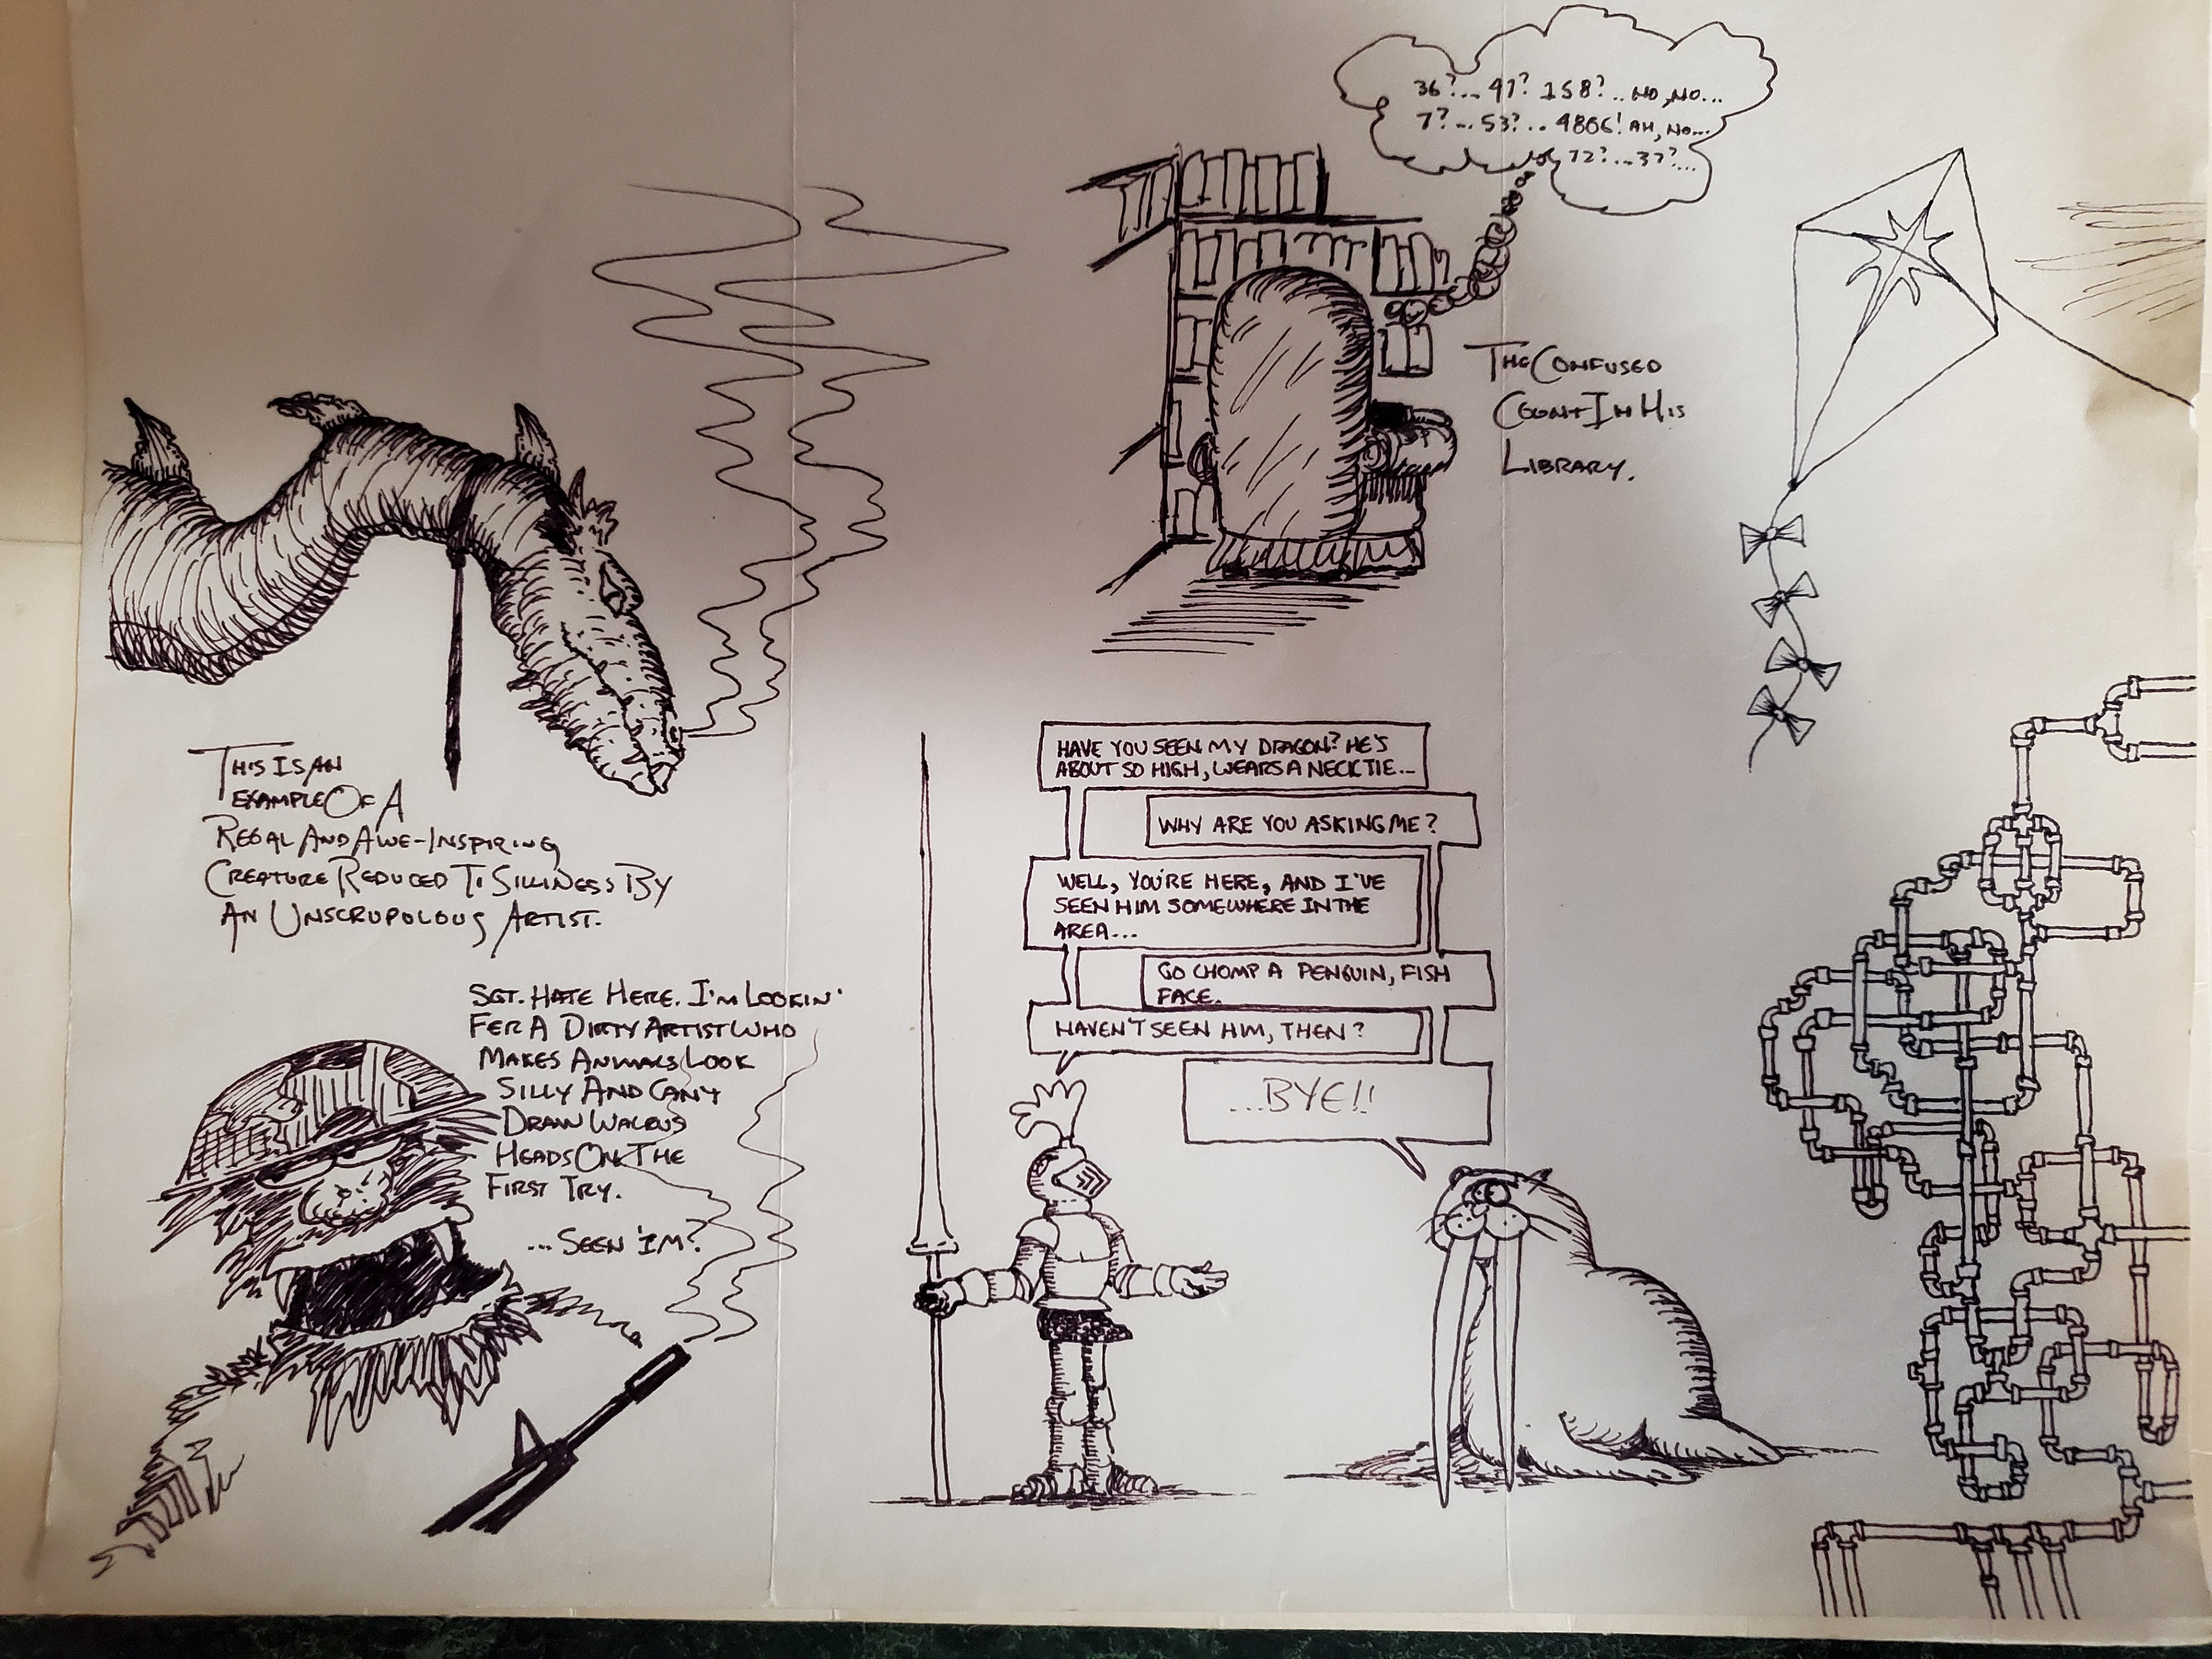 36?... 97? 158?.. NO, NO...
7?... 53?... 4806! AH, NO...
72?...37?...
THE CONFUSED
COUNT IN HIS
LIBRARY.
THIS IS AN
EXAMPLE OF A
REGAL AND AWE-INSPIRING
CREATURE REDUCED TO SILLINESS BY
AN UNSCRUPOLOUS ARTIST.
HAVE YOU SEEN MY DRAGON? HE'S
ABOUT SO HIGH, WEARS A NECKTIE...
WHY ARE YOU ASKING ME?
WELL, YOU'RE HERE, AND I'VE
SEEN HIM SOMEWHERE IN THE
AREA...
GO CHOMP A PENGUIN, FISH
FACE.
HAVEN'T SEEN HIM, THEN?
...BYE!!
SGT. HATE HERE. I'M LOOKIN'
FER A DIRTY ARTIST WHO
MAKES ANIMALS LOOK
SILLY AND CAN'T
DRAW WALRUS
HEADS ON THE
FIRST TRY.
...SEEN 'IM?